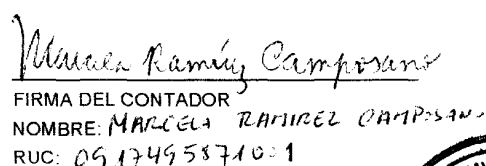 Marcela Ramírez Camposano
FIRMA DEL CONTADOR
NOMBRE: MARCELA RAMIREZ CAMPOSANO
RUC: 0917495871001